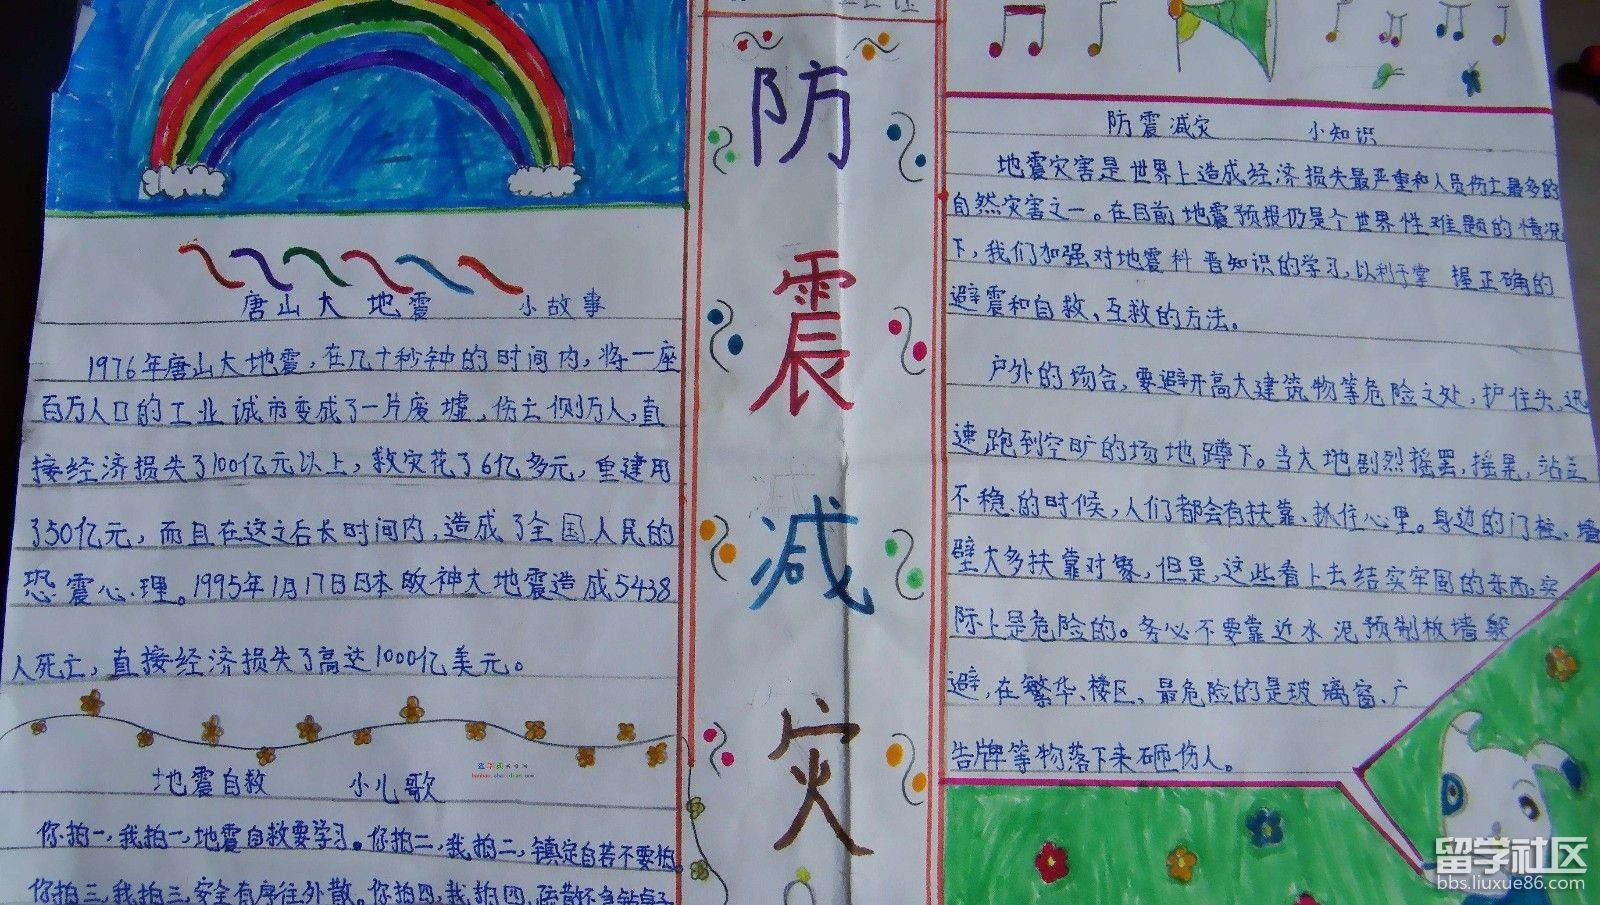 唐山大地震 小故事
1976年唐山大地震,在几十秒钟的时间内,将一座
百万人口的工业诚市变成了一片废墟,伤亡侧万人,直
接经济损失了100亿元以上,救灾花了6亿多元,重建用
了50亿元,而且在这之后长时间内,造成了全国人民的
恐震心理。1995年1月17日日本败神大地震造成5438
人死亡,直接经济损失了高达1000亿美元。
地震自救 小儿歌
你拍一,我拍一,地震自救要学习。你拍二,我拍二,镇定自若不要怕。
你拍三,我拍三,安全有序往外散。你拍四,我拍四,疏散不急钻桌子
防
震
减
灾
防震减灾 小知识
地震灾害是世界上造成经济损失最严重和人员伤亡最多的
自然灾害之一。在目前地震预报仍是个世界性难题的情况
下,我们加强对地震科晋知识的学习,以利于掌握正确的
避震和自救、互救的方法。
户外的场合,要避开高大建筑物等危险之处,护住头,迅
速跑到空旷的场地蹲下。当大地剧烈摇罢,摇晃,站立
不稳的时候,人们都会有扶靠、抓住心里。身边的门柱、墙
壁大多扶靠对象,但是,这些看上去结实牢固的东西,实
际上是危险的。务必不要靠近水泥预制板墙躲
避,在繁华、楼区,最危险的是玻璃窗、广
告牌等物落下来砸伤人。
留学社区
bbs.liuxue86.com